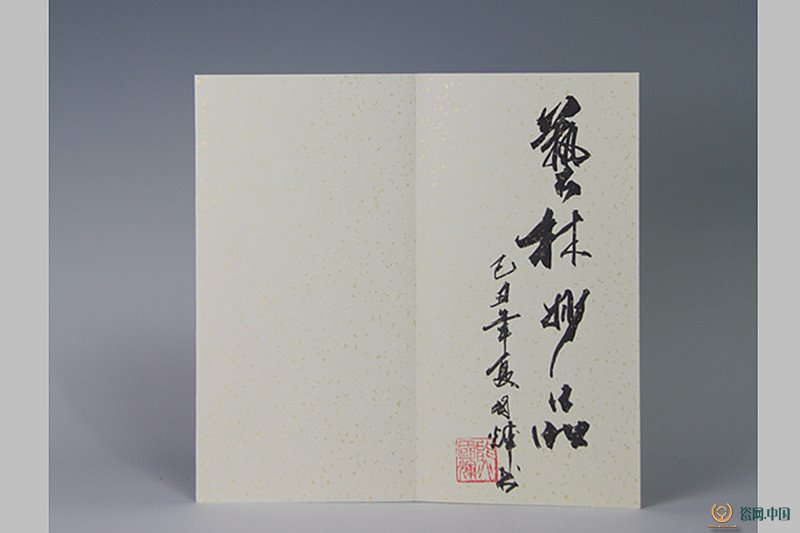 藝林妙品
己丑年夏國輝书
瓷网.中国